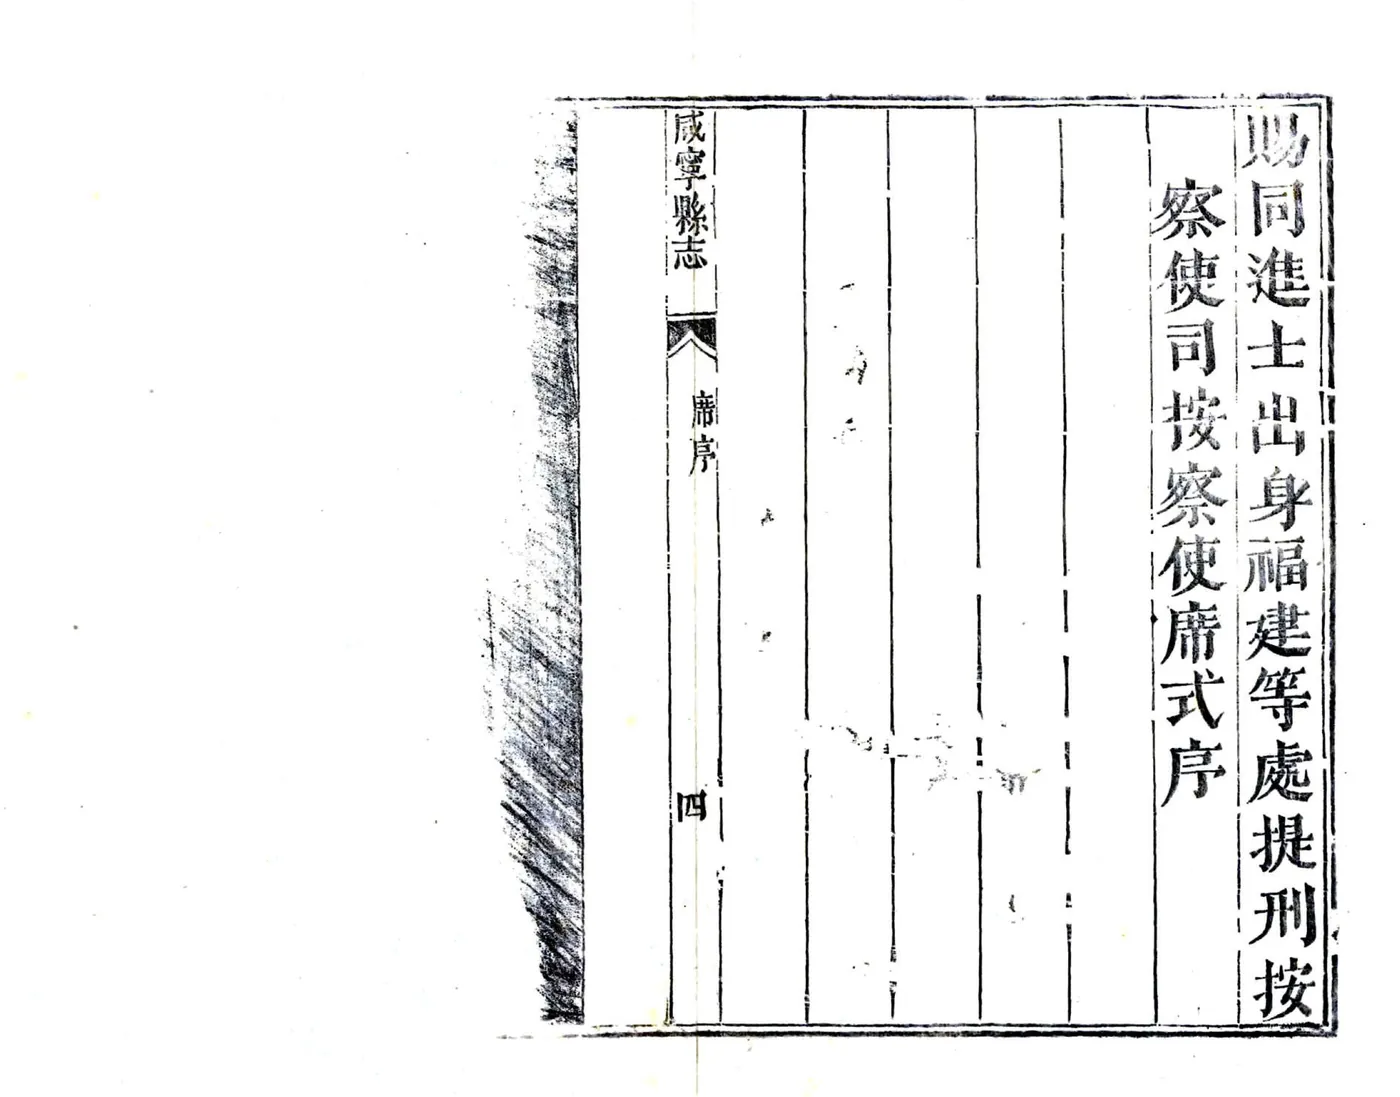 賜同進士出身福建等處提刑按
察使司按察使席式序
咸寧縣志
席序
四